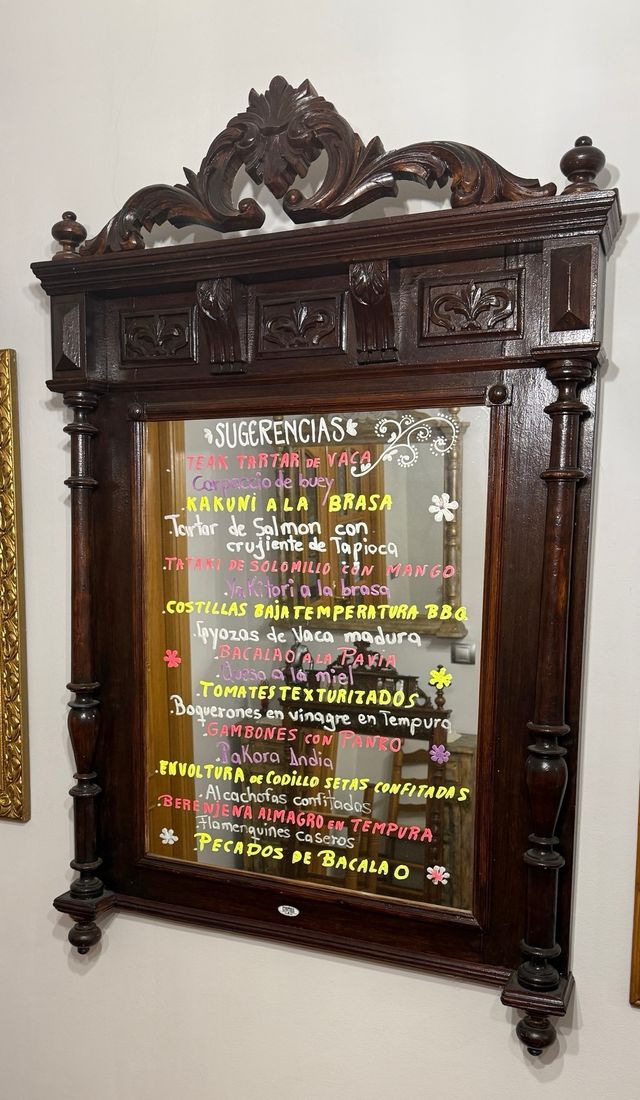 SUGERENCIAS
TEAK TARTAR DE VACA
Carpaccio de buey
KAKUNI A LA BRASA
Tartar de Salmon con
crujiente de Tapioca
.TATAKI DE SOLOMILLO CON MANGO
.Yakitori a la brasa
.COSTILLAS BAJA TEMPERATURA BBQ
.Gyozas de Vaca madura
.BACALAO A LA PAVIA
.Queso a la miel
.TOMATES TEXTURIZADOS
.Boquerones en vinagre en Tempura
.GAMBONES CON PANKO
.Pakora India
.ENVOLTURA DE CODILLO SETAS CONFITADAS
.Alcachofas confitadas
.BERENJENA ALMAGRO EN TEMPURA
.Flamenquines caseros
.PECADOS DE BACALAO